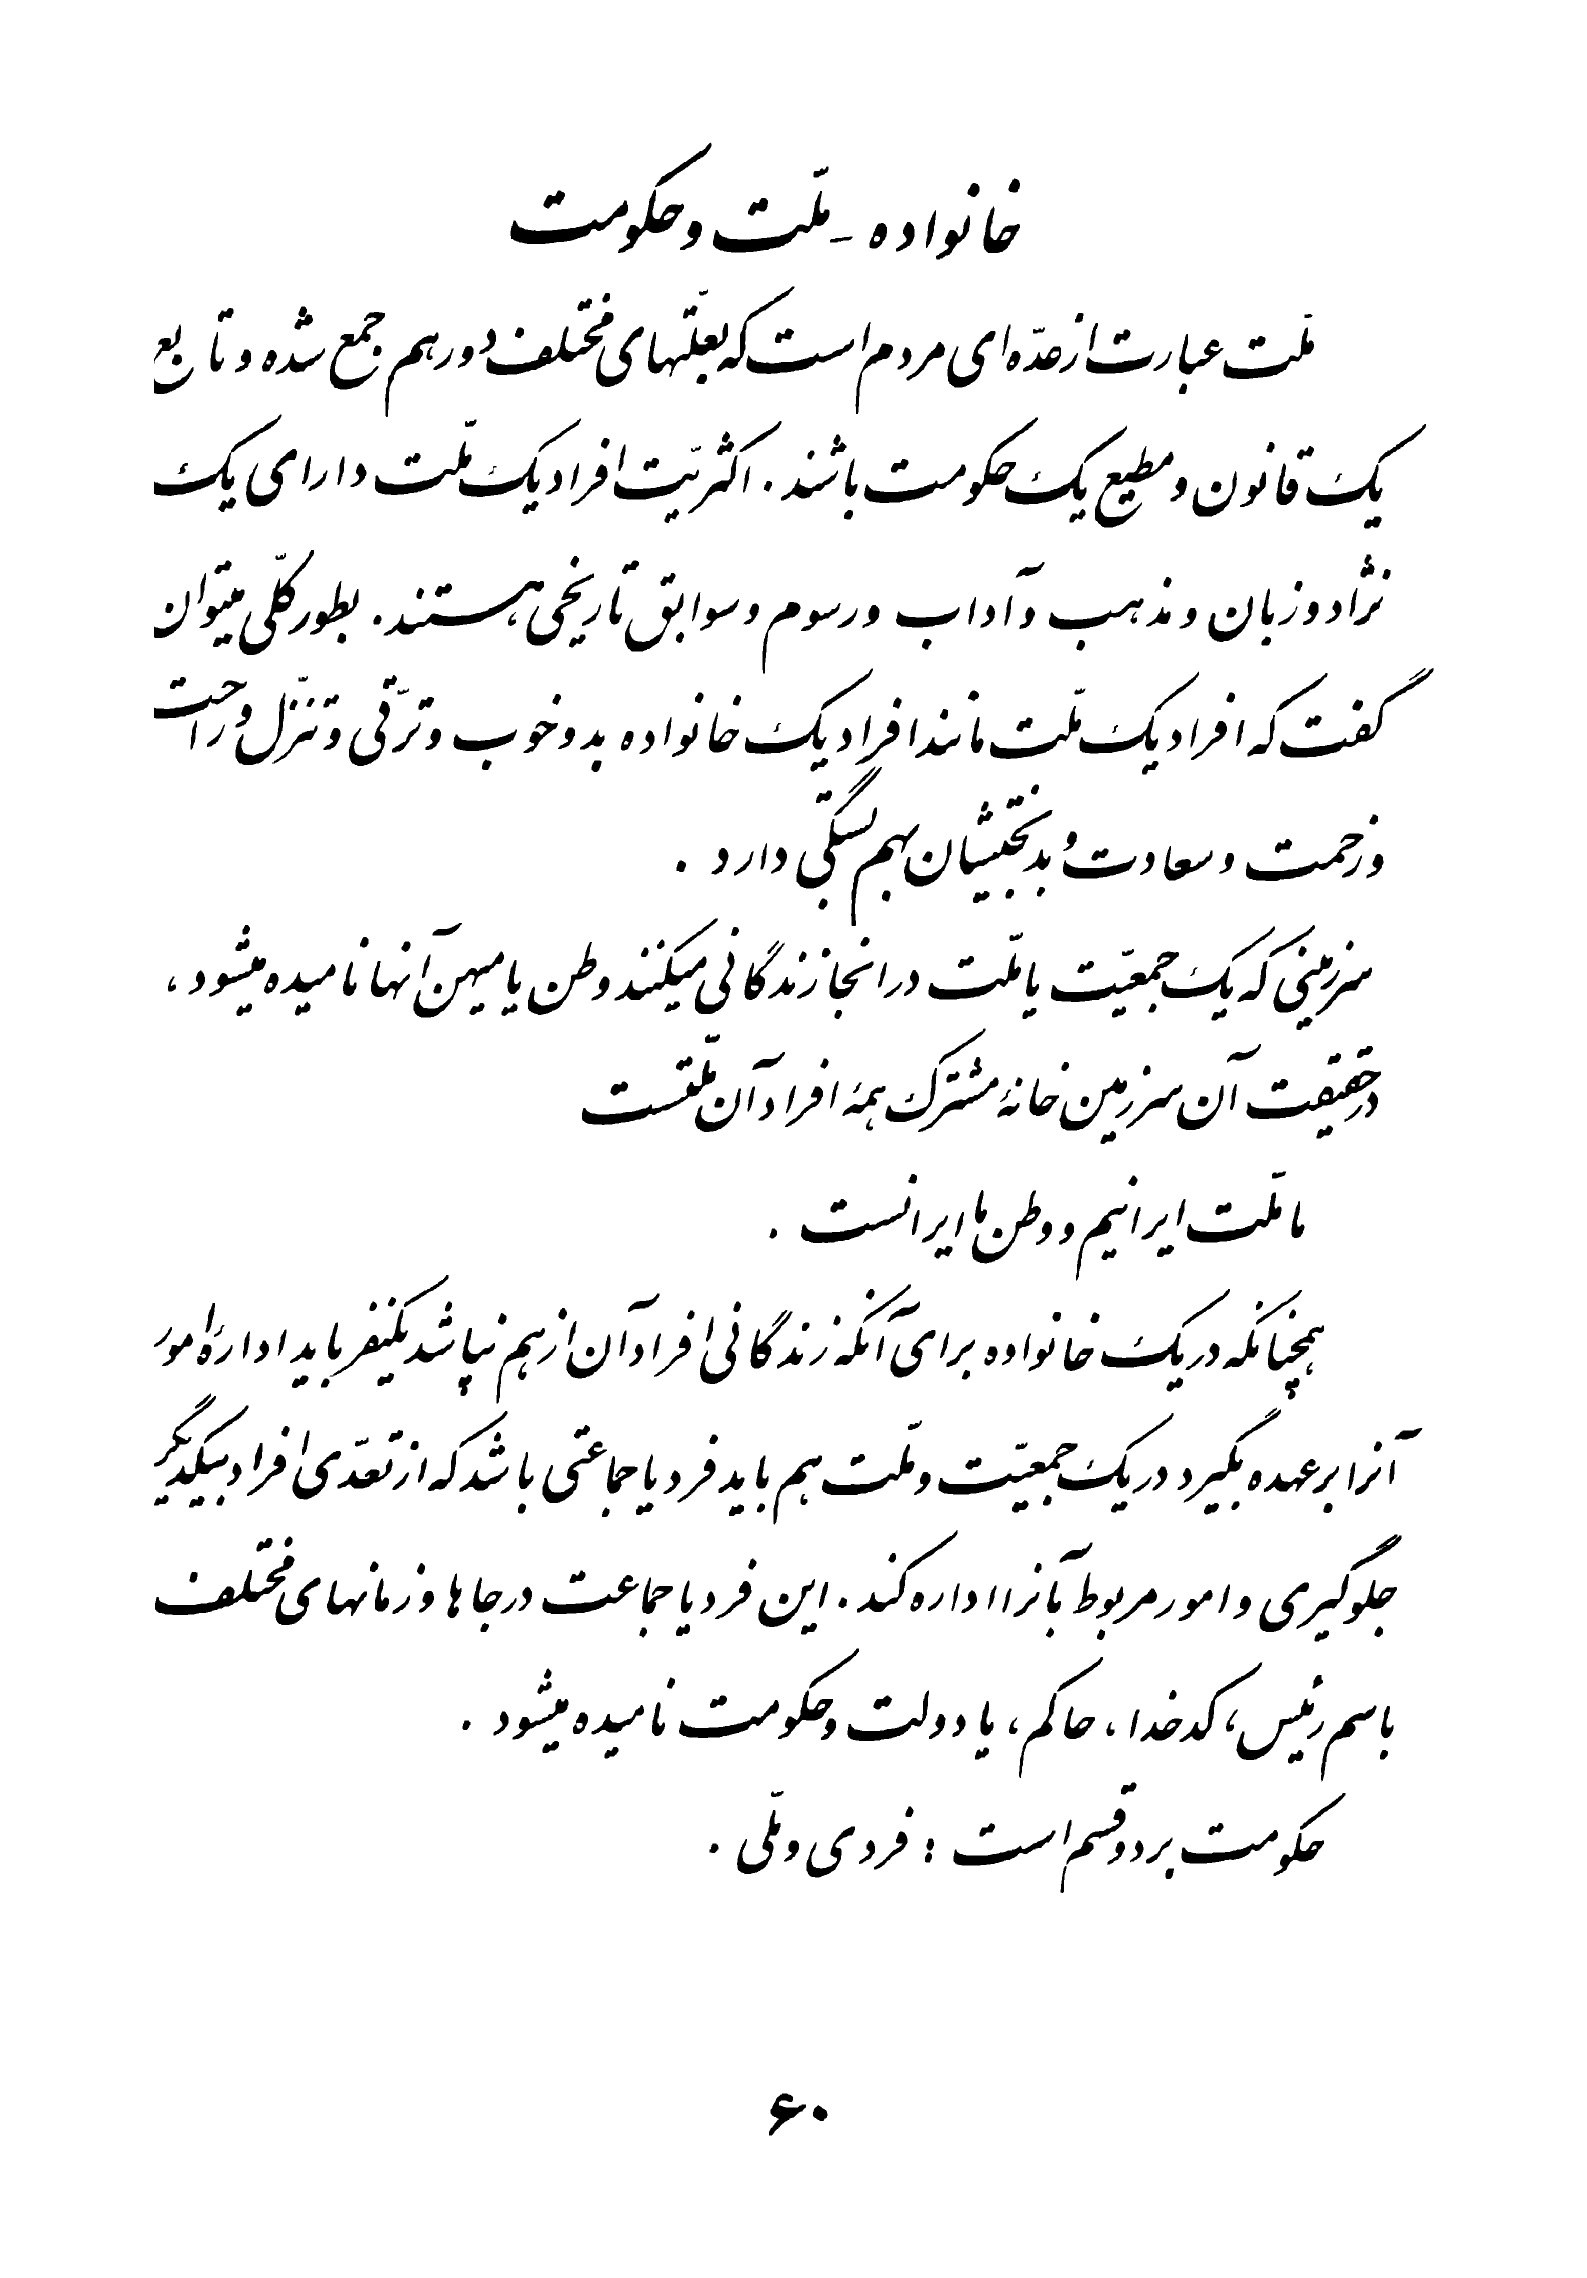 خانواده - ملّت و حکومت
ملّت عبارت از عدّه‌ای مردم است که بعلّتهای مختلف دور هم جمع شده و تابع
یک قانون و مطیع یک حکومت باشند . اکثریّت افراد یک ملّت دارای یک
نژاد و زبان و مذهب و آداب و رسوم و سوابق تاریخی هستند . بطور کلّی میتوان
گفت که افراد یک ملّت مانند افراد یک خانواده بد و خوب و ترّقی و تنزّل و راحت
و زحمت و سعادت و بدبختیشان بهم بستگی دارد .
سرزمینی که یک جمعیّت یا ملّت در انجا زندگانی میکنند وطن یا میهن آنها نامیده میشود ،
در حقیقت آن سرزمین خانهٔ مشترک همهٔ افراد آن ملّتست
ما ملّت ایرانیم و وطن ما ایرانست .
همچنانکه در یک خانواده برای آنکه زندگانی افراد آن از هم نپاشد یکنفر باید ادارهٔ امور
آنرا بر عهده بگیرد در یک جمعیّت و ملّت هم باید فرد یا جماعتی باشد که از تعدّی افراد بیکدیگر
جلوگیری و امور مربوط بآنرا اداره کند . این فرد یا جماعت در جاها و زمانهای مختلف
باسم رئیس ، کدخدا ، حاکم ، یا دولت و حکومت نامیده میشود .
حکومت بر دو قسم است : فردی و ملّی .
۶۰